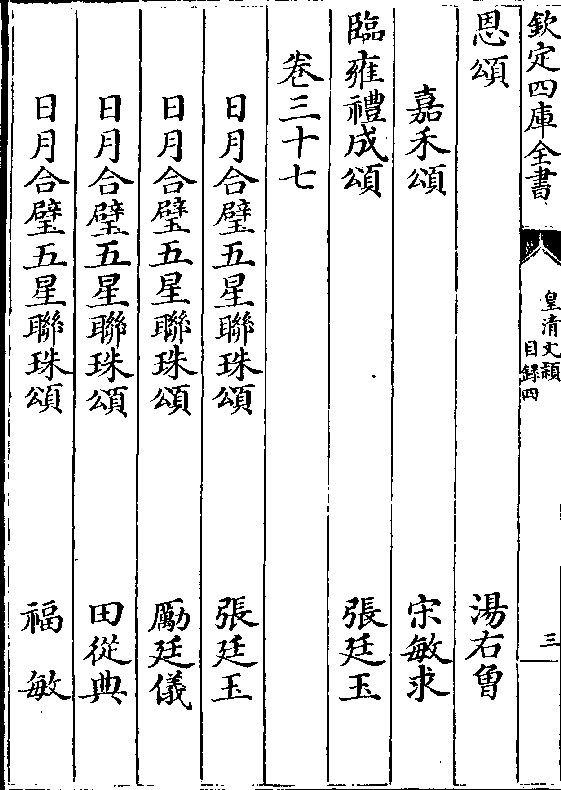 欽定四庫全書
皇清文穎
目録四
三
恩頌
湯右曾
嘉禾頌
宋敏求
臨雍禮成頌
張廷玉
卷三十七
日月合璧五星聯珠頌
張廷玉
日月合璧五星聯珠頌
勵廷儀
日月合璧五星聯珠頌
田從典
日月合璧五星聯珠頌
福敏